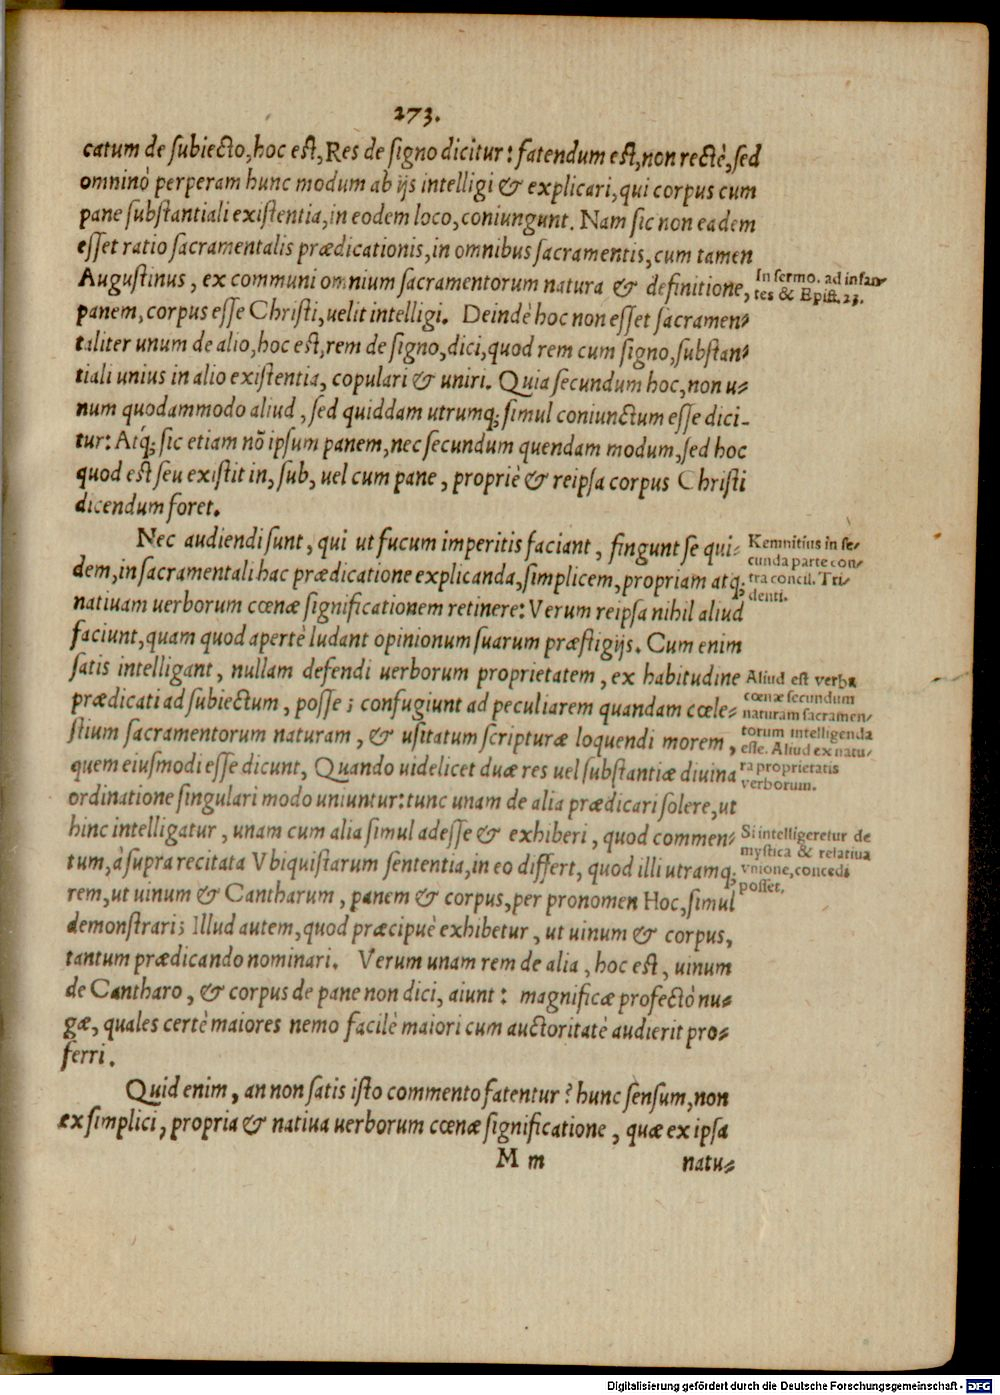 273.
catum de subiecto, hoc est, Res de signo dicitur: fatendum est, non rectè, sed
omninò perperam hunc modum ab ijs intelligi & explicari, qui corpus cum
pane substantiali existentia, in eodem loco, coniungunt. Nam sic non eadem
esset ratio sacramentalis prædicationis, in omnibus sacramentis, cum tamen
Augustinus, ex communi omnium sacramentorum natura & definitione,
panem, corpus esse Christi, uelit intelligi. Deindè hoc non esset sacramen-
taliter unum de alio, hoc est, rem de signo, dici, quod rem cum signo, substan-
tiali unius in alio existentia, copulari & uniri. Quia secundum hoc, non u-
num quodammodo aliud, sed quiddam utrumq; simul coniunctum esse dici-
tur: Atq́; sic etiam nō ipsum panem, nec secundum quendam modum, sed hoc
quod est seu existit in, sub, uel cum pane, propriè & reipsa corpus Christi
dicendum foret.
In sermo. ad infan-
tes & Epist. 23.
Nec audiendi sunt, qui ut fucum imperitis faciant, fingunt se qui-
dem, in sacramentali hac prædicatione explicanda, simplicem, propriam atq;
natiuam uerborum cœnæ significationem retinere: Verum reipsa nihil aliud
faciunt, quam quod apertè ludant opinionum suarum præstigijs. Cum enim
satis intelligant, nullam defendi uerborum proprietatem, ex habitudine
prædicati ad subiectum, posse; confugiunt ad peculiarem quandam cœle-
stium sacramentorum naturam, & usitatum scripturæ loquendi morem,
quem eiusmodi esse dicunt, Quando uidelicet duæ res uel substantiæ diuina
ordinatione singulari modo uniuntur: tunc unam de alia prædicari solere, ut
hinc intelligatur, unam cum alia simul adesse & exhiberi, quod commen-
tum, à supra recitata Vbiquistarum sententia, in eo differt, quod illi utramq;
rem, ut uinum & Cantharum, panem & corpus, per pronomen Hoc, simul
demonstrari; Illud autem, quod præcipuè exhibetur, ut uinum & corpus,
tantum prædicando nominari. Verum unam rem de alia, hoc est, uinum
de Cantharo, & corpus de pane non dici, aiunt: magnificæ profectò nu-
gæ, quales certè maiores nemo facilè maiori cum auctoritatè audierit pro-
ferri.
Kemnitius in se-
cunda parte con-
tra concil. Tri-
denti.
Aliud est verba
cœnæ secundum
naturam sacramen-
torum intelligenda
esse. Aliud ex natu-
ra proprietatis
verborum.
Si intelligeretur de
mystica & relatiua
vnione, concedi
posset.
Quid enim, an non satis isto commento fatentur? hunc sensum, non
ex simplici, propria & natiua uerborum cœnæ significatione, quæ ex ipsa
M m natu-
Digitalisierung gefördert durch die Deutsche Forschungsgemeinschaft - DFG